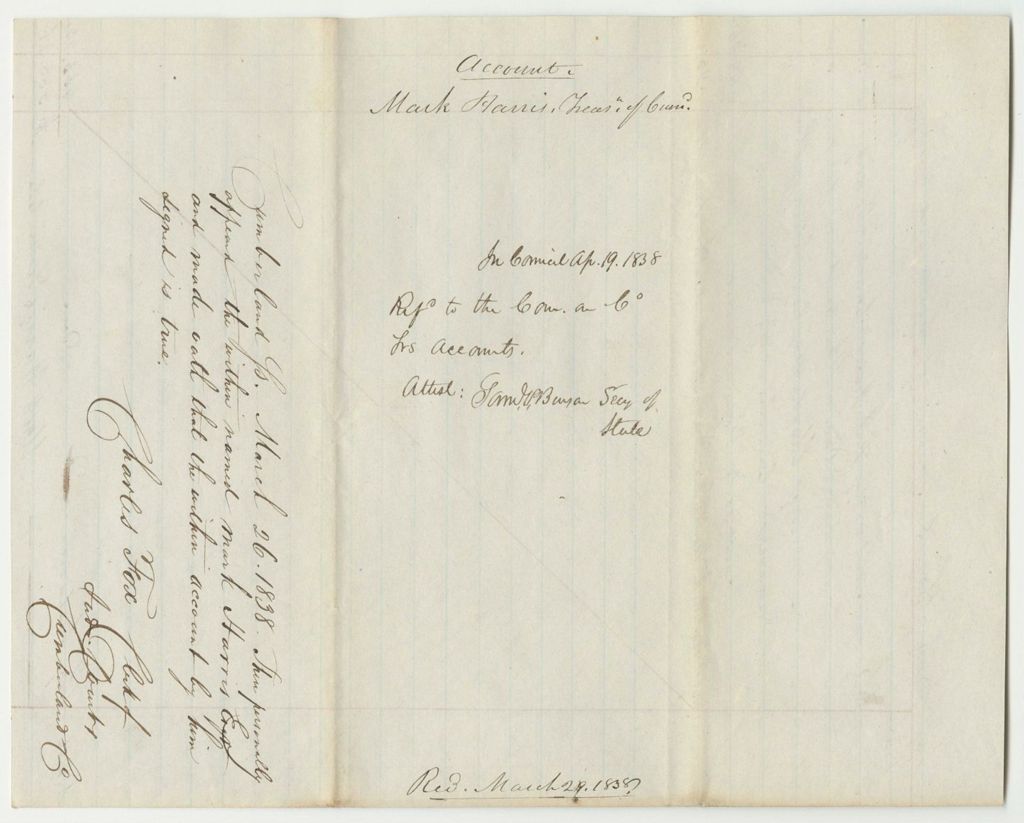 Account.
Mark Harris, Treasr. of Cumd.
In Council Ap. 19. 1838
Refd to the Com. on Co
Trs Accounts.
Attest: Saml P Benson Secy of
State
Recd. March 29. 1838
Cumberland Ss. March 26. 1838. Then personally
appeard the within named Mark Harris Esqr
and made oath that the within account by him
signed is true.
Charles Fox Clk of
Jud. Courts
Cumberland Co